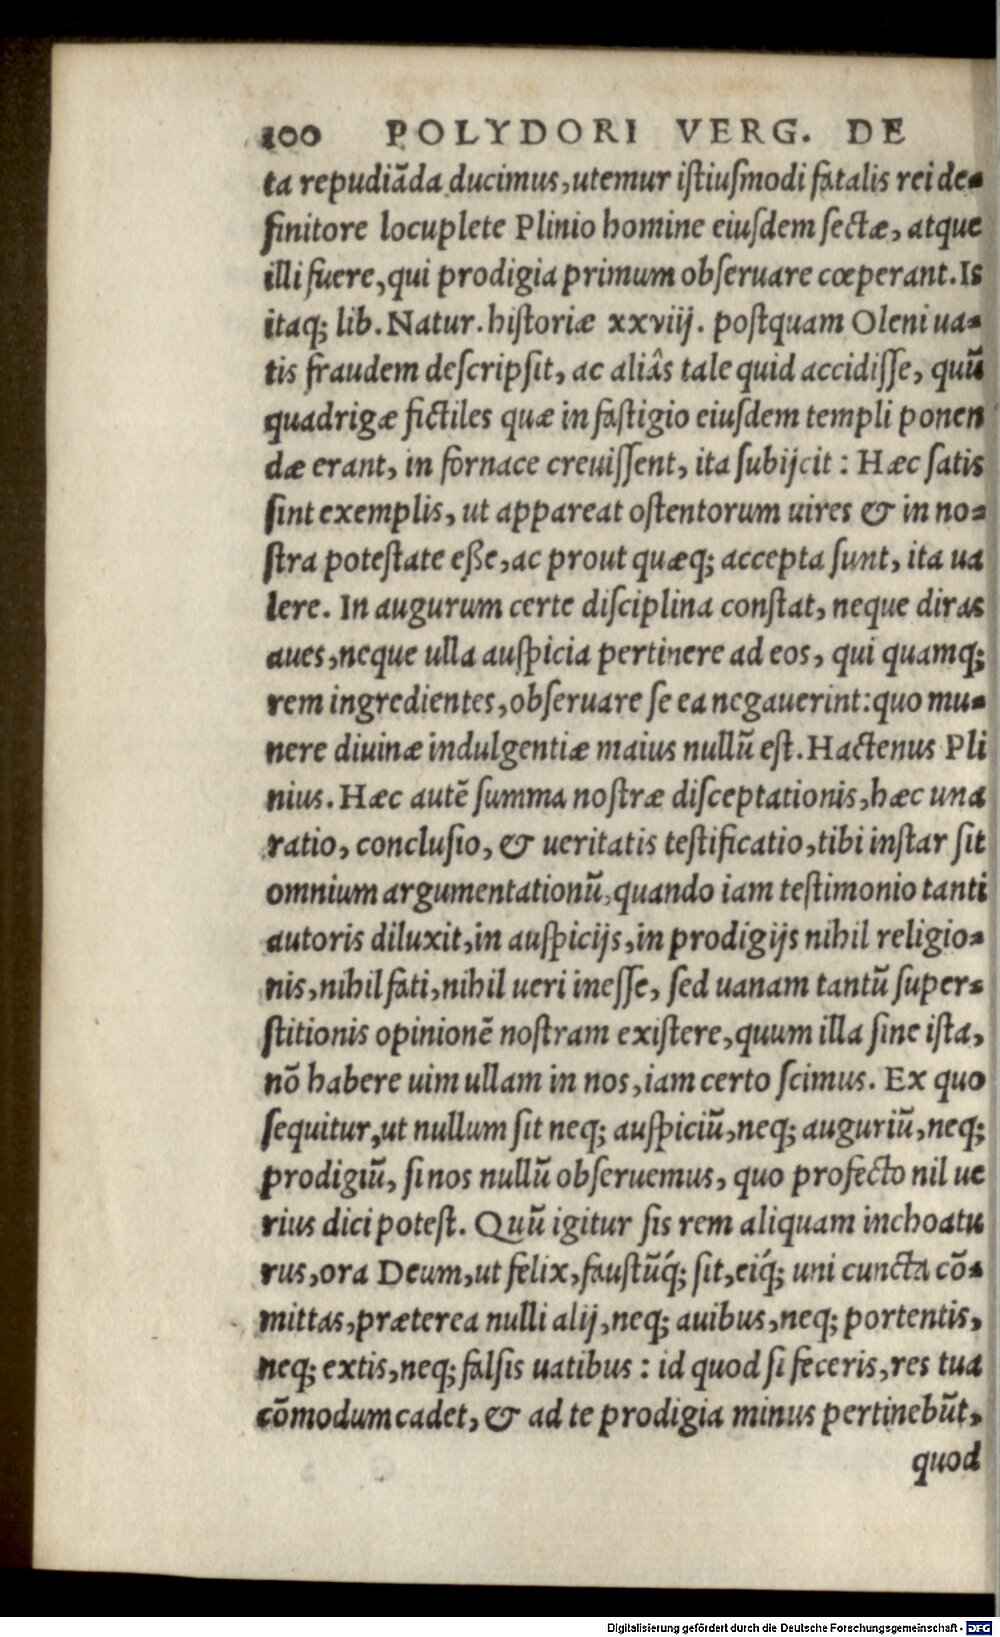 100 POLYDORI VERG. DE
ta repudiãda ducimus, utemur iſtiuſmodi fatalis rei de-
finitore locuplete Plinio homine eiuſdem ſectæ, atque
illi fuere, qui prodigia primum obſeruare cœperant. Is
itaq; lib. Natur. hiſtoriæ xxviij. poſtquam Oleni ua-
tis fraudem deſcripſit, ac aliâs tale quid accidiſſe, quũ
quadrigæ fictiles quæ in faſtigio eiuſdem templi ponen
dæ erant, in fornace creuiſſent, ita ſubijcit : Hæc ſatis
ſint exemplis, ut appareat oſtentorum uires & in no-
ſtra poteſtate eße, ac prout quæq; accepta ſunt, ita ua
lere. In augurum certe diſciplina conſtat, neque diras
aues, neque ulla auſpicia pertinere ad eos, qui quamq;
rem ingredientes, obſeruare ſe ea negauerint: quo mu-
nere diuinæ indulgentiæ maius nullũ eſt. Hactenus Pli
nius. Hæc autẽ ſumma noſtræ diſceptationis, hæc una
ratio, concluſio, & ueritatis teſtificatio, tibi inſtar ſit
omnium argumentationũ, quando iam teſtimonio tanti
autoris diluxit, in auſpicijs, in prodigijs nihil religio-
nis, nihil fati, nihil ueri ineſſe, ſed uanam tantũ ſuper-
ſtitionis opinionẽ noſtram exiſtere, quum illa ſine iſta,
nõ habere uim ullam in nos, iam certo ſcimus. Ex quo
ſequitur, ut nullum ſit neq; auſpiciũ, neq; auguriũ, neq;
prodigiũ, ſi nos nullũ obſeruemus, quo profecto nil ue
rius dici poteſt. Quũ igitur ſis rem aliquam inchoatu
rus, ora Deum, ut felix, fauſtũq́; ſit, eiq́; uni cuncta cõ-
mittas, præterea nulli alij, neq; auibus, neq; portentis,
neq; extis, neq; falſis uatibus : id quod ſi feceris, res tua
cõmodum cadet, & ad te prodigia minus pertinebũt,
quod
Digitalisierung gefördert durch die Deutsche Forschungsgemeinschaft - DFG